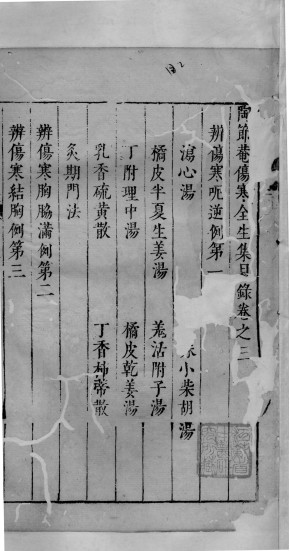 陶節菴傷寒全生集目錄卷之三
辨傷寒呃逆例第一
瀉心湯 小柴胡湯
橘皮半夏生姜湯 羗活附子湯
丁附理中湯 橘皮乾姜湯
乳香硫黄散 丁香柿蒂散
灸期門法
辨傷寒胸脇滿例第二
辨傷寒結胸例第三